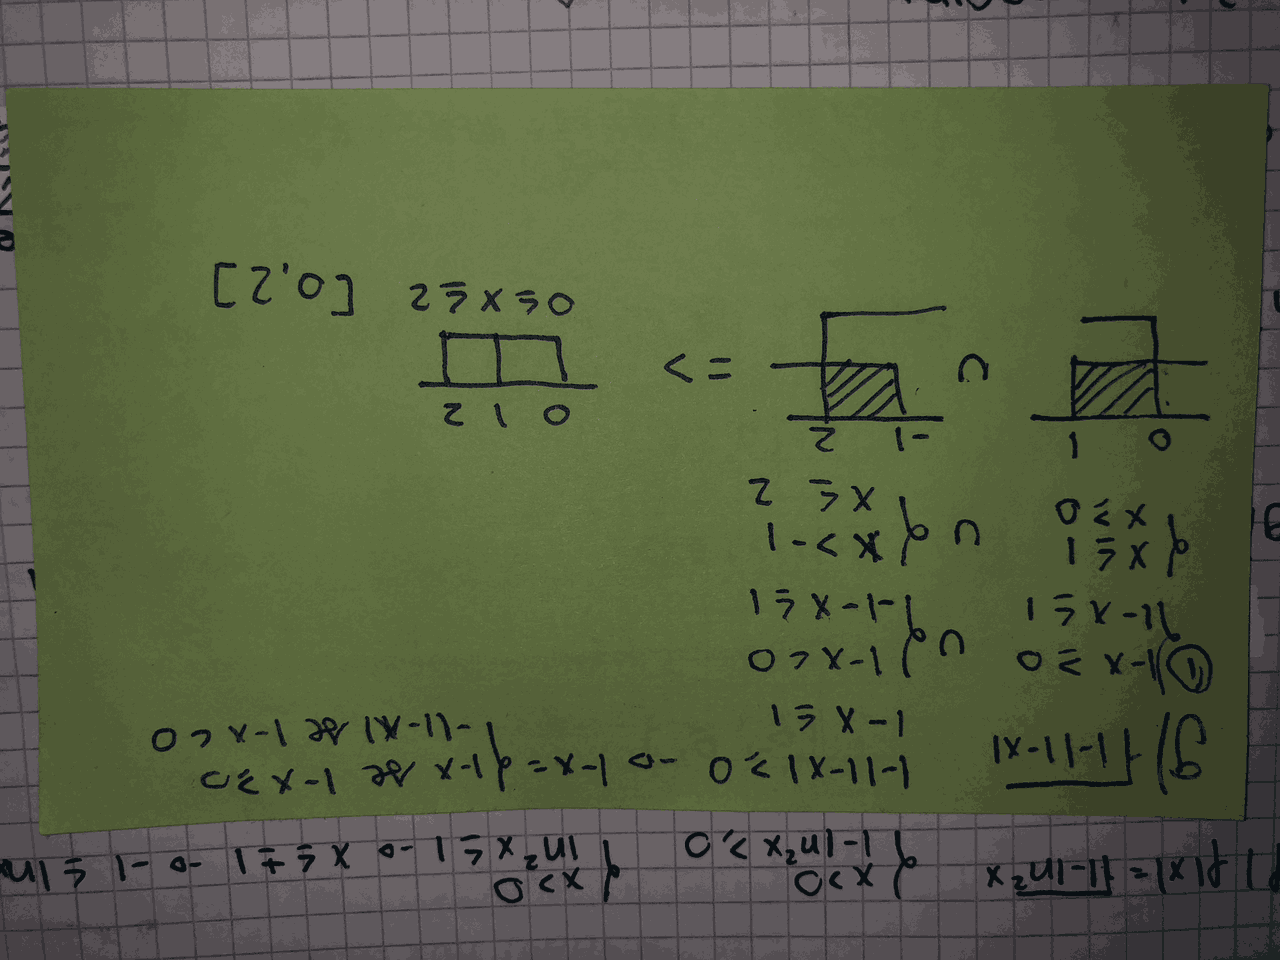 g) √1-|1-x| 1-|1-x| ≥ 0 → 1-x = { 1-x se 1-x ≥ 0
1-x ≤ 1 -|1-x| se 1-x < 0
① 1-x ≥ 0 ∪ { 1-x < 0
1-x ≤ 1 -1-x ≤ 1
{ x ≤ 1 ∪ { x > -1
x ≥ 0 x ≤ 2
0 1 -1 2
∪ => 0 1 2
0 ≤ x ≤ 2 [0,2]
f(x) = √1-ln²x { x>0 { x>0
1-ln²x ≥ 0 ln²x ≤ 1 → x ≤ ±1 → -1 ≤ ln